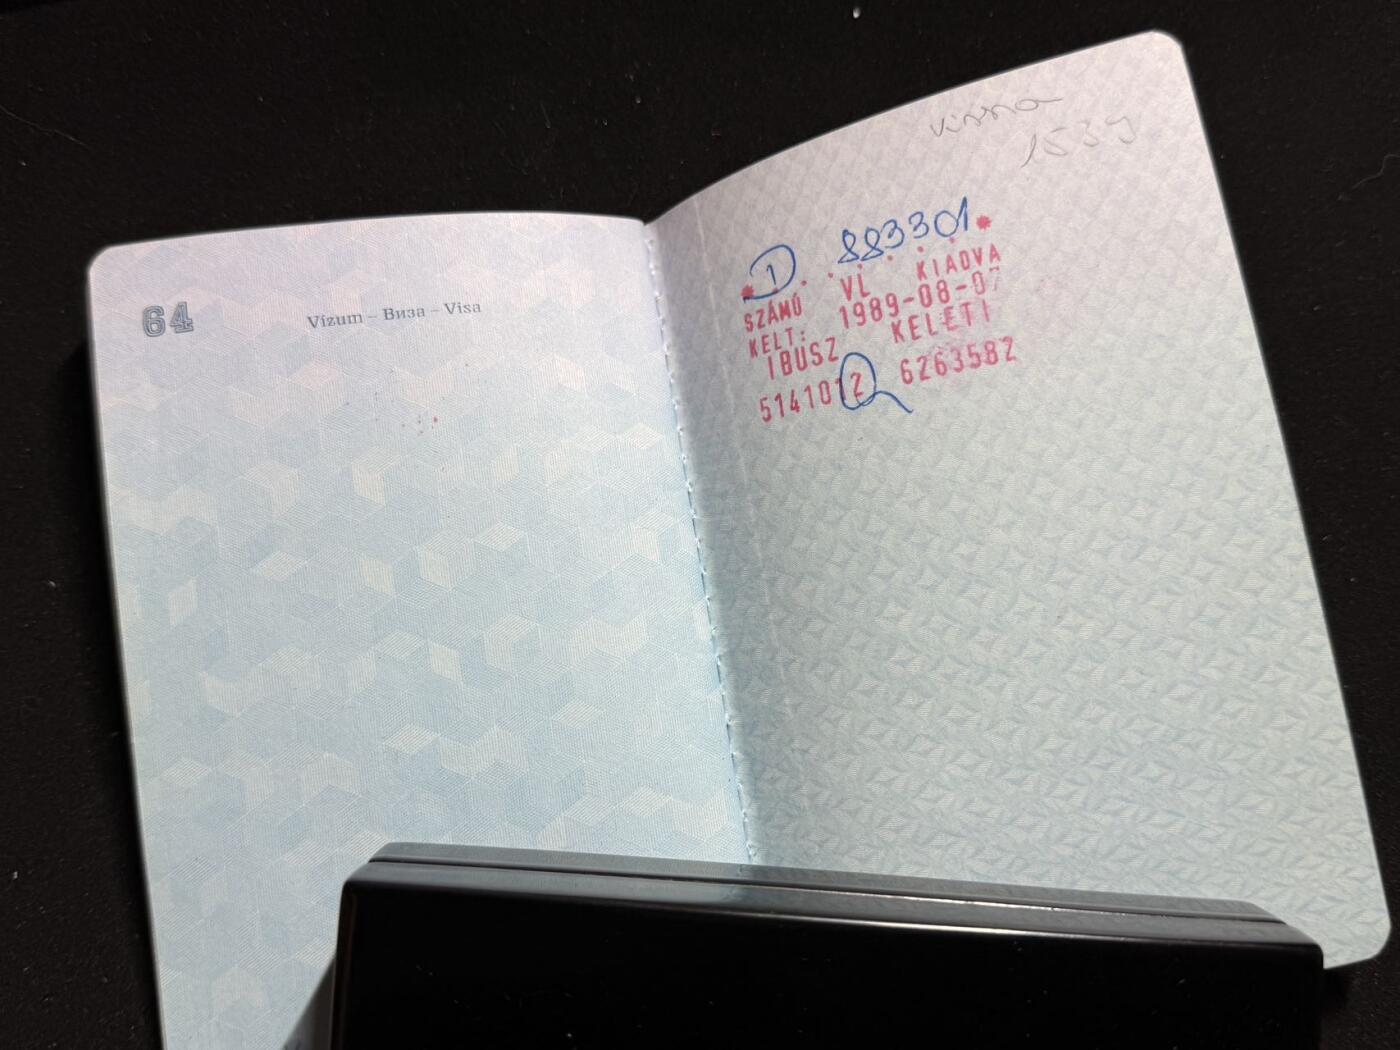 64
Vízum – Виза – Visa
1539
1 883301
SZÁMÚ VL KIADVA
KELT: 1989-08-07
IBUSZ KELETI
5141012 6263582